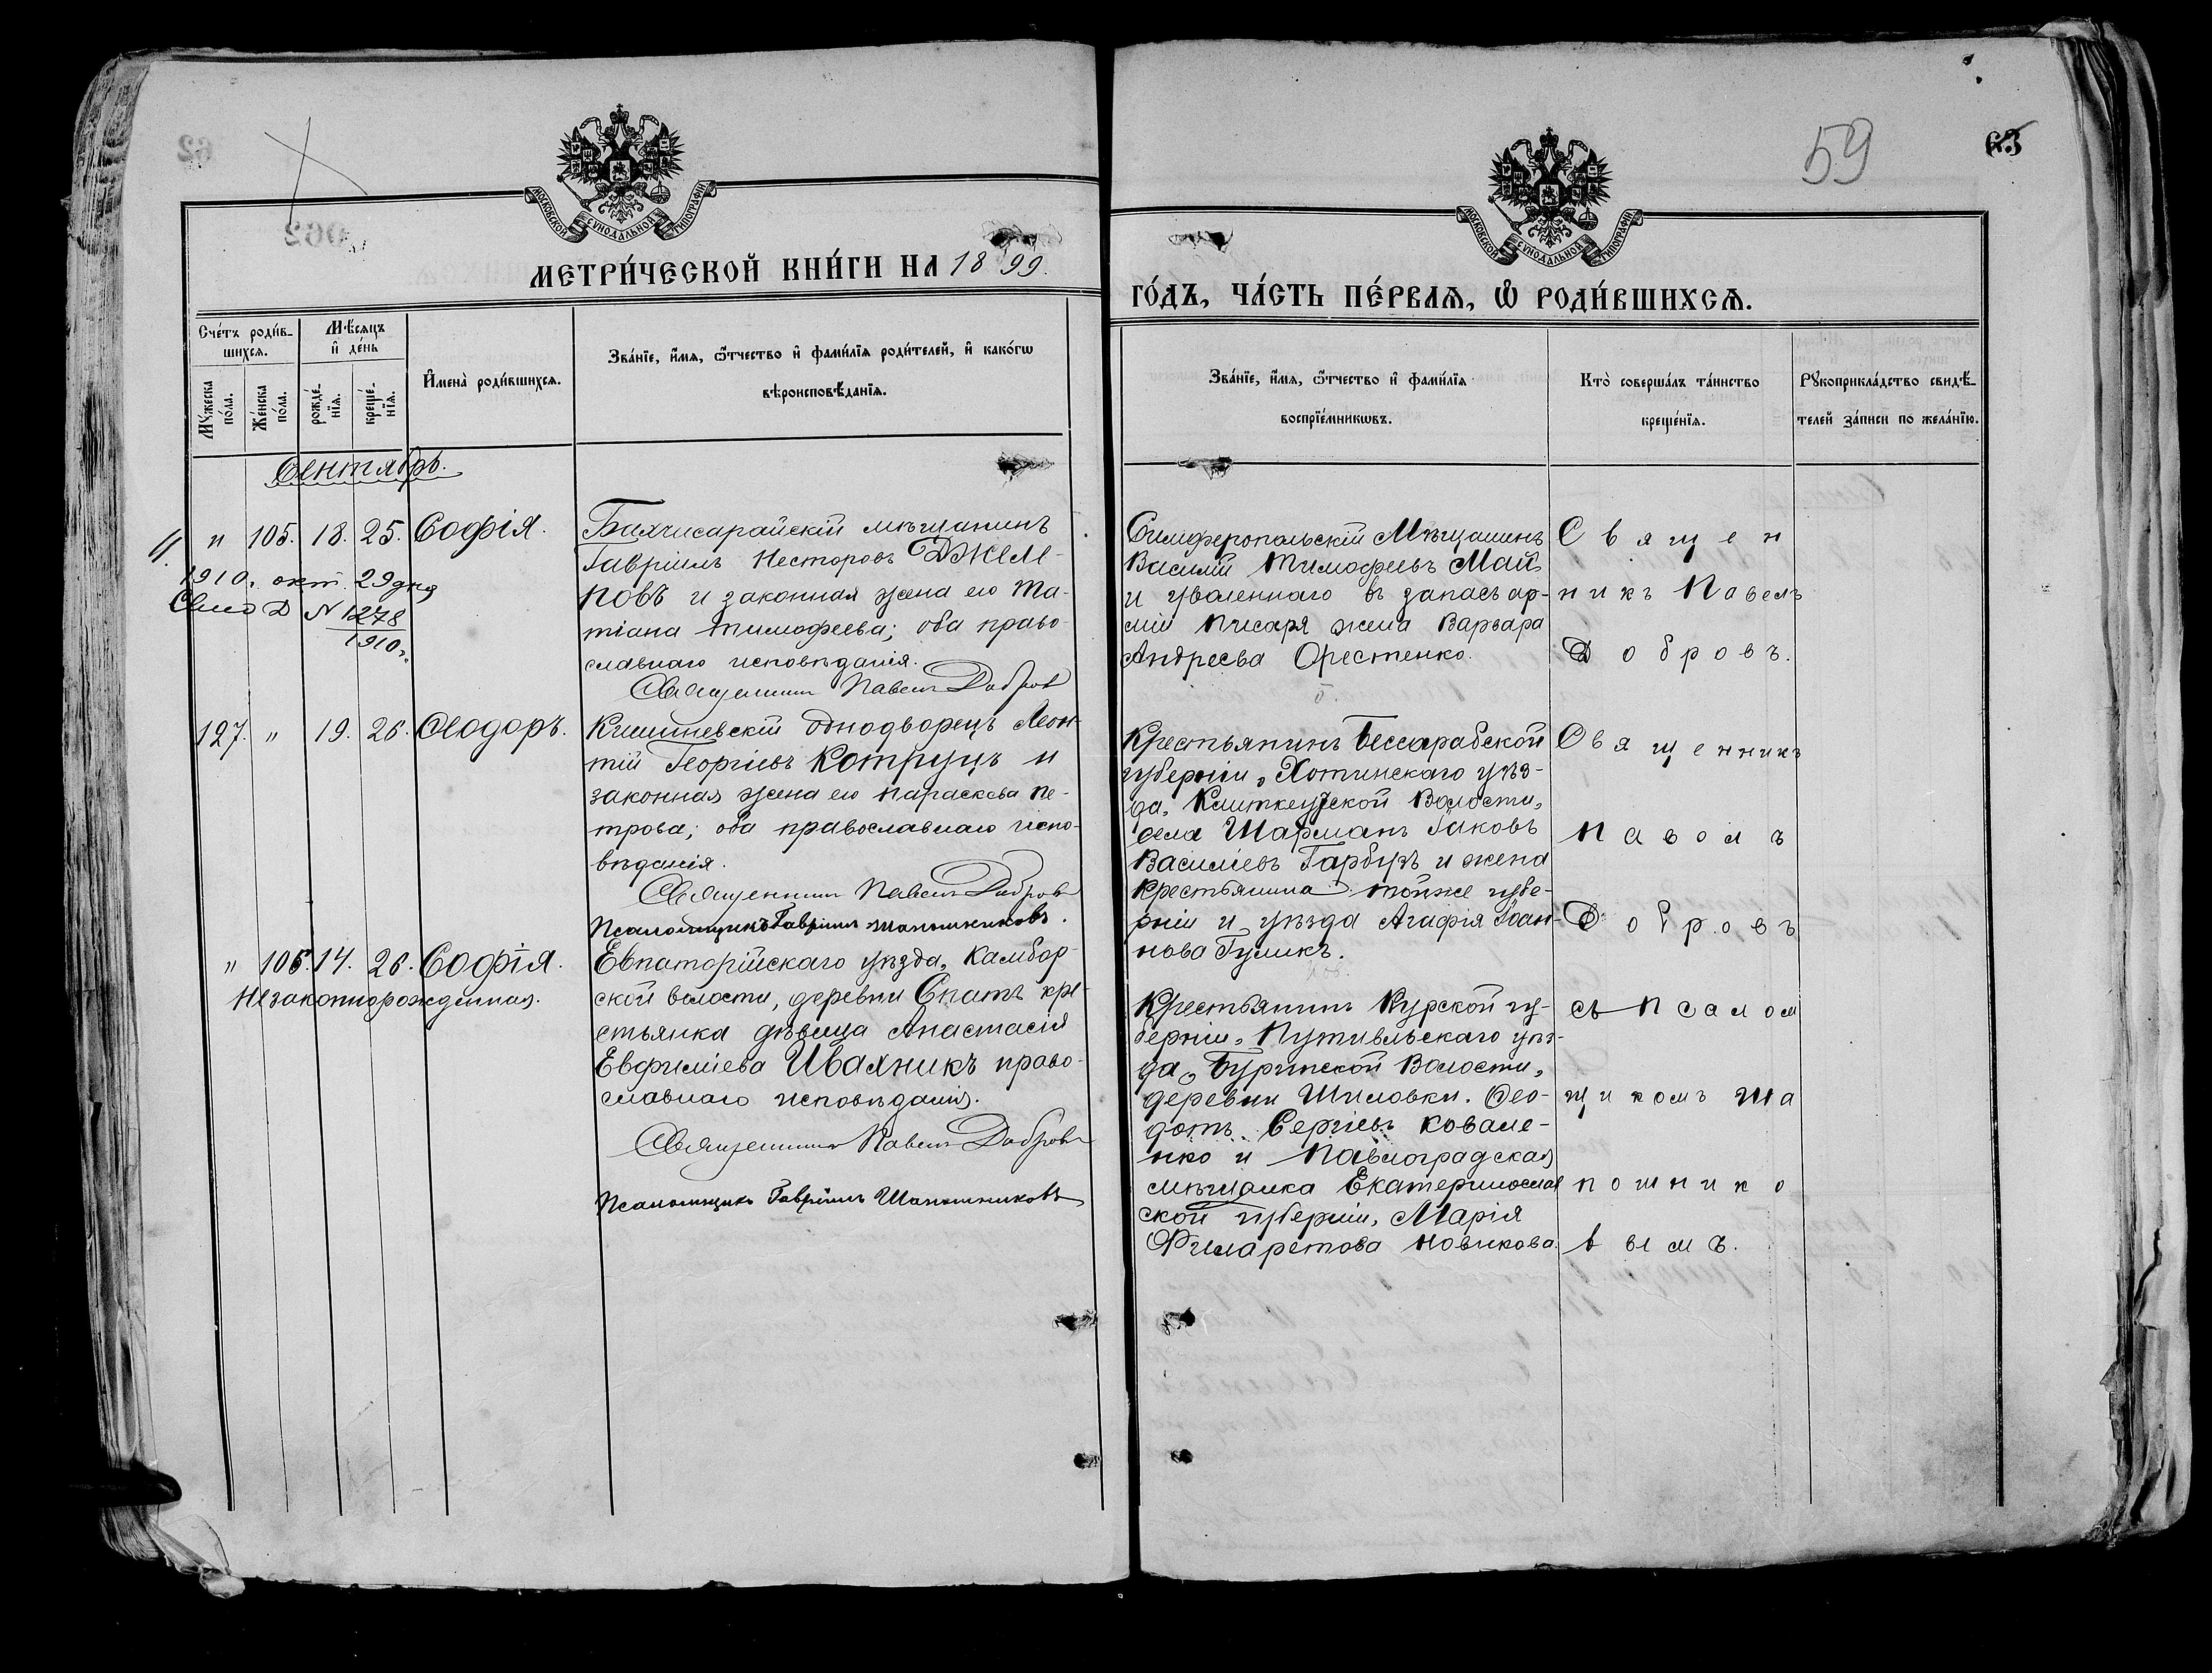 59
63
МОСКОВСКОЙ СѴНОДАЛЬНОЙ ТИПОГРАФІИ
МОСКОВСКОЙ СѴНОДАЛЬНОЙ ТИПОГРАФІИ
МЕТРИ́ЧЕСКОЙ КНИ́ГИ НА 1899.
ГО́ДЪ, ЧА́СТЬ ПЕ́РВАѦ, Ѽ РОДИ́ВШИХСѦ.
Сче́тъ роди́в-
шихсѧ.
Мѣ́сѧцъ
и҆ де́нь
Мꙋ́жеска
по́ла.
Же́нска
по́ла.
рожде́-
нїѧ.
креще́-
нїѧ.
И҆мена̀ роди́вшихсѧ.
Зва́нїе, и҆́мѧ, ѻ҆́тчество и҆ фами́лїѧ роди́телей, и҆ како́гѡ
вѣроисповѣ́данїѧ.
Зва́нїе, и҆́мѧ, ѻ҆́тчество и҆ фами́лїѧ
воспрїе́мникѡвъ.
Кто̀ соверша́лъ та́инство
креще́нїѧ.
Рꙋкоприкла́дство свидѣ́-
телей за́писи по жела́нїю.
Сентябрь.
" 105. 18. 25. Софія.
1910 г. окт. 29 дня
№ 1278
1910 г.
Бахчисарайскій мѣщанинъ
Гавріилъ Несторовъ Джем-
повъ и законная жена его Та-
тіана Тимофеева; оба право-
славнаго исповѣданія.
Священникъ Павелъ Добровъ
Симферопольскій Мѣщанинъ
Василій Тимофеевъ Май
и уволеннаго въ запасъ ар-
міи писаря жена Варвара
Андреева Орестенко.
Священ
никъ Павелъ
Добровъ.
127. " 19. 26. Ѳеодоръ.
Кишиневскій однодворецъ Леон-
тій Георгіевъ Котруцъ и
законная жена его Параскева Пе-
трова; оба православнаго испо-
вѣданія.
Священникъ Павелъ Добровъ
Псаломщикъ Гавріилъ Шапошниковъ.
Крестьянинъ Бессарабской
губерніи, Хотинскаго уѣз-
да, Волости,
села Іаковъ
Василіевъ Гарбузъ и жена
крестьянина тойже губе-
рніи и уѣзда Агафія Іоан-
нова
Священникъ
Павелъ
Добровъ
" 106. 14. 26. Софія.
Незаконнорожденная.
Евпаторійскаго уѣзда, Камбар-
ской волости, деревни Спатъ кре-
стьянка дѣвица Анастасія
Евфиміева Ивахникъ право-
славнаго исповѣданія.
Священникъ Павелъ Добровъ
Псаломщикъ Гавріилъ Шапошниковъ
Крестьянинъ Курской гу-
берніи, Путивльскаго уѣз-
да, Бурынской Волости,
деревни Шиловки, Ѳео-
дотъ Сергіевъ Ковале-
нко и Павлоградская
мѣщанка Екатеринослав
ской губерніи, Марія
Филаретова Новикова.
съ псалом
щикомъ Ша
пошнико
вымъ.